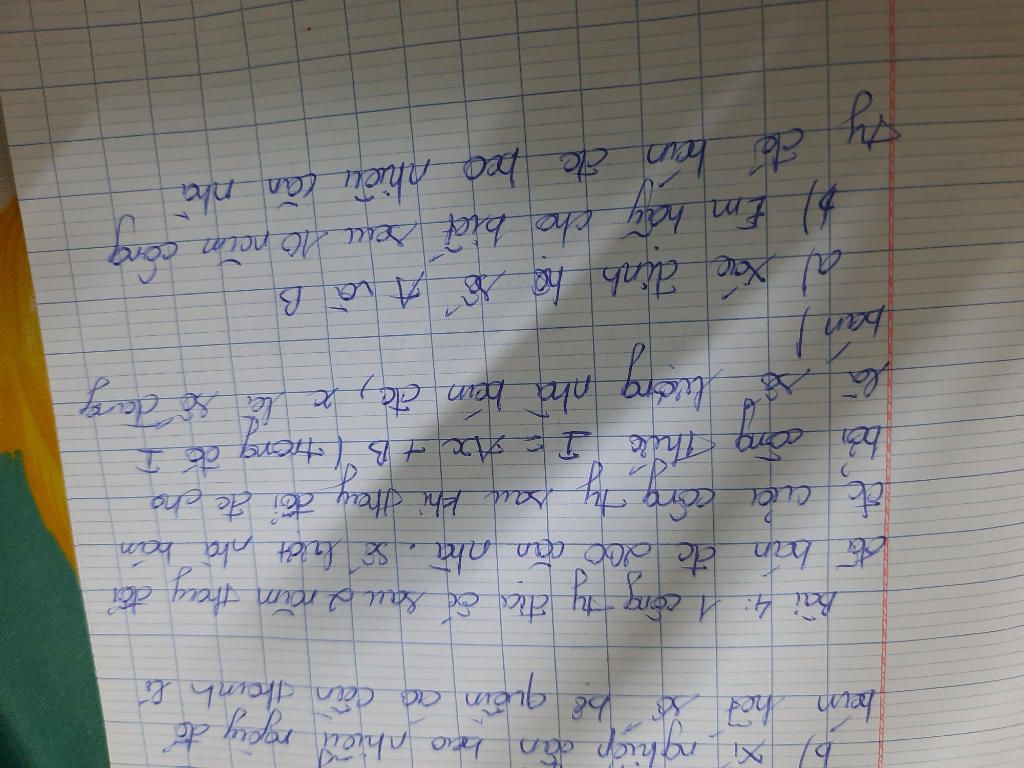 b) Xí nghiệp cần bao nhiêu ngày để
bán hết số bộ quần áo cần thanh lí
Bài 4: 1 công ty địa ốc sau 2 năm thay đổi
đã bán đc 200 căn nhà. Số lượt nhà bán
đc của công ty sau khi thay đổi đc cho
bởi công thức I = Ax + B (trong đó I
là số lượng nhà bán đc, x là số
bán)
a) Xác định hệ số A và B
b) Em hãy cho biết sau 10 năm công
ty đã bán đc bao nhiêu căn nhà